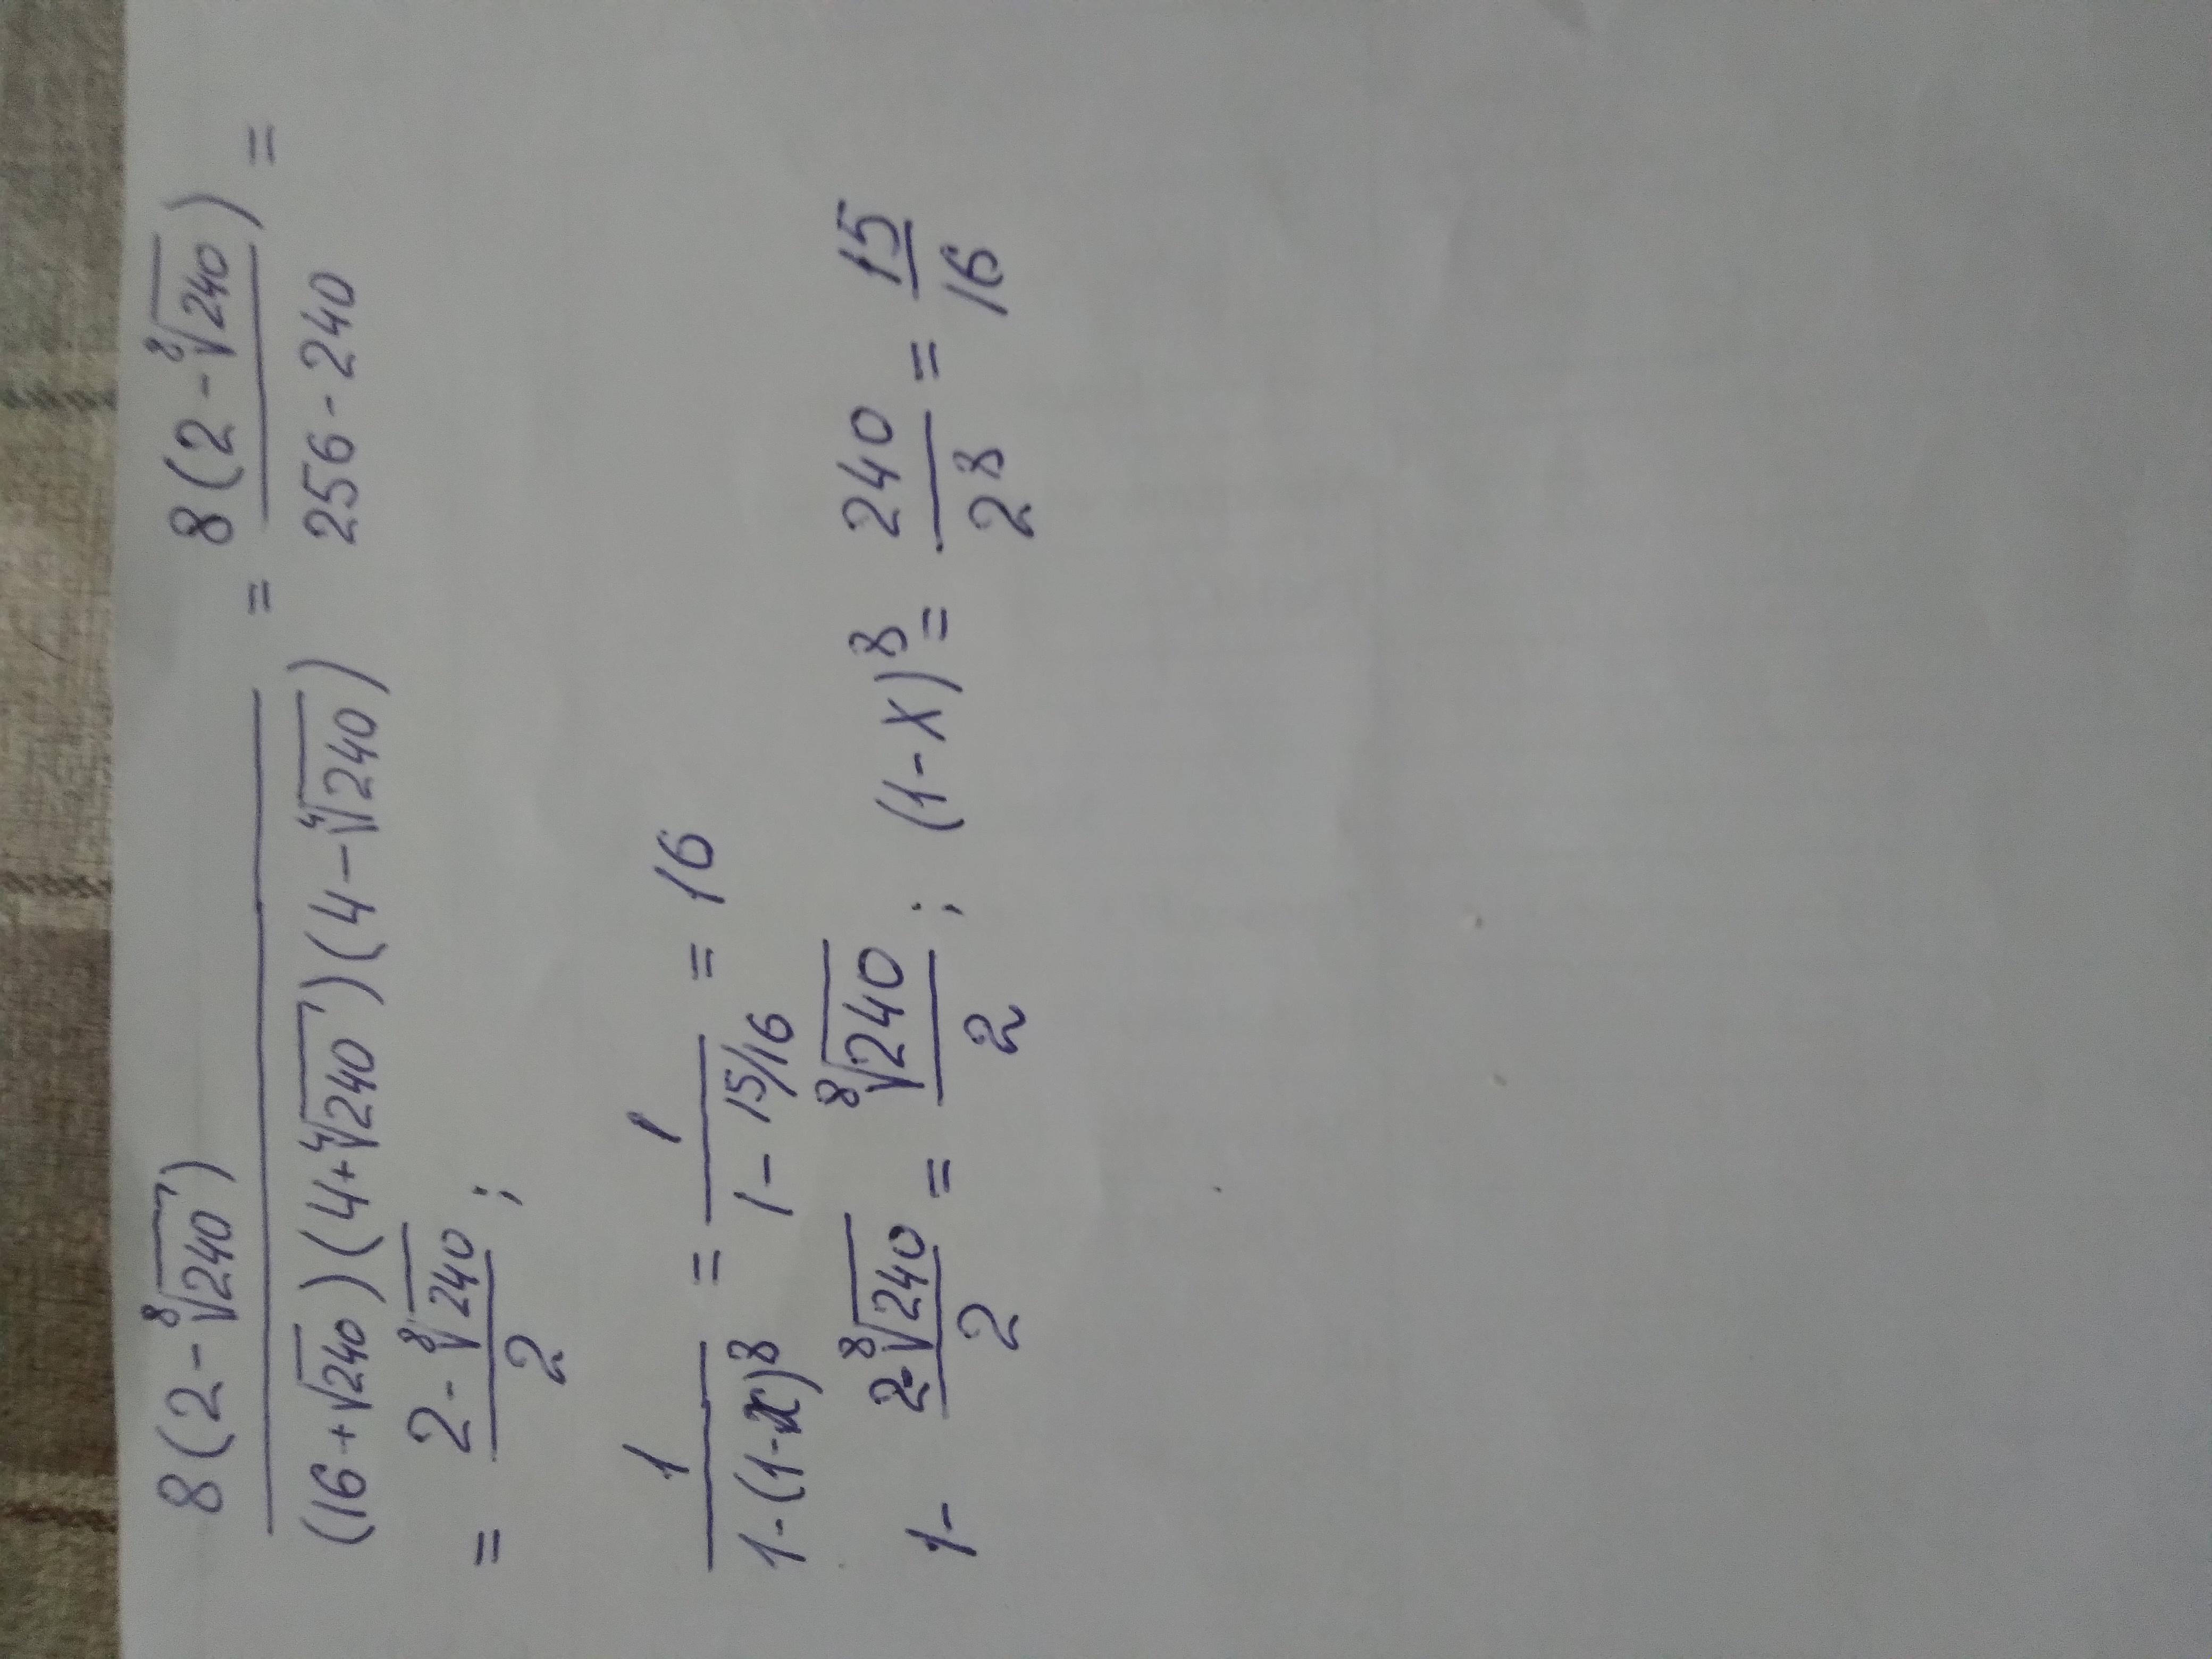 8(2-⁸√240) / (16+√240)(4+⁴√240)(4-⁴√240) = 8(2-⁸√240) / 256-240 =
= 2-⁸√240 / 2 ;
1 / 1-(1-x)⁸ = 1 / 1-15/16 = 16
1- 2-⁸√240 / 2 = ⁸√240 / 2 ; (1-x)⁸ = 240 / 2⁸ = 15 / 16